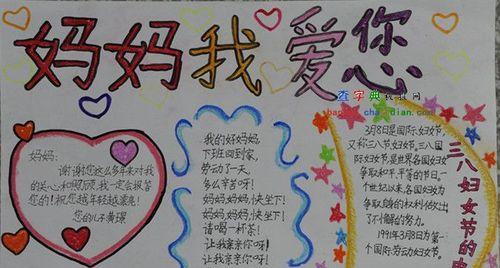 妈妈我爱您
查字典教教网
chazidian.com
妈妈:
谢谢您这么多年来对我
的关心和照顾,我一定会报答
您的!祝您越年轻越漂亮!
您的儿子黄璟
我的好妈妈,
下班回到家,
劳动了一天,
多么辛苦呀!
妈妈妈妈,快坐下!
妈妈妈妈,快坐下!
请喝一杯茶!
让我亲亲你呀!
让我亲亲你呀!
3月8日是国际妇女节,
又称三八节妇女节。三八国
际妇女节,是世界各国妇女
争取和平、平等的节日。一
个世纪以来,各国妇女为
争取她们的权利做出了
不懈的努力。
1991年3月8日为第一
个国际劳动妇女节。
三八妇女节的由